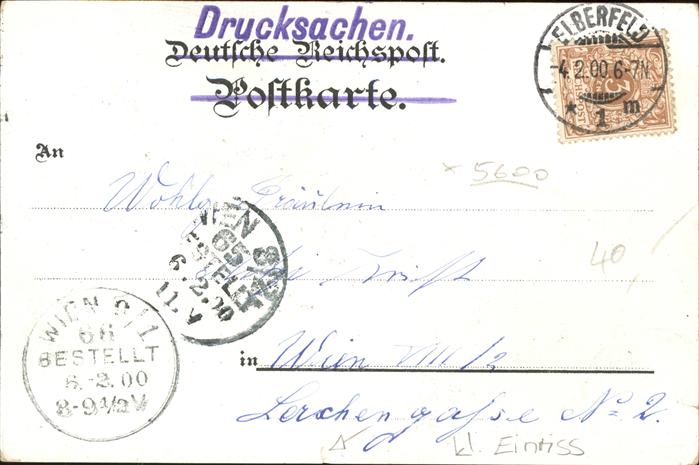 Drucksachen.
Deutsche Reichspost.
Postkarte.
ELBERFELD
4.2.00.6-7N
* 1 m
An
5600
Wohlg. Fräulein
WIEN
65
BESTELLT
6.2.00
11.V
40,
WIEN 9/1
66
BESTELLT
6.-2.00
8-9½V
in Wien VIII/2
Lerchengasse No 2.